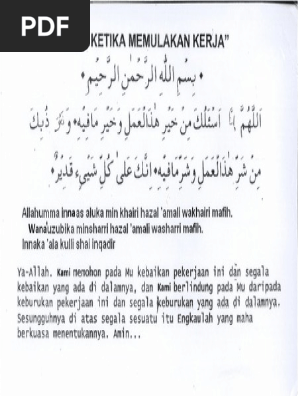 PDF
KETIKA MEMULAKAN KERJA”
بِسْمِ اللهِ الرَّحْمٰنِ الرَّحِيْمِ
اَللّٰهُمَّ اِنَّا اَسْئَلُكَ مِنْ خَيْرِ هٰذَالْعَمَلِ وَخَيْرِ مَافِيْهِ
مِنْ شَرِّ هٰذَالْعَمَلِ وَشَرِّ مَافِيْهِ اِنَّكَ عَلٰى كُلِّ شَيْئٍ قَدِيْرٌ
Allahumma innaas aluka min khairi hazal 'amali wakhairi mafih.
Wana'uzubika minsharri hazal 'amali washarri mafih.
Innaka 'ala kulli shai inqadir
Ya-Allah. Kami menohon pada Mu kebaikan pekerjaan ini dan segala
kebaikan yang ada di dalamnya, dan Kami berlindung pada Mu daripada
keburukan pekerjaan ini dan segala keburukan yang ada di dalamnya.
Sesungguhnya di atas segala sesuatu itu Engkaulah yang maha
berkuasa menentukannya. Amin...